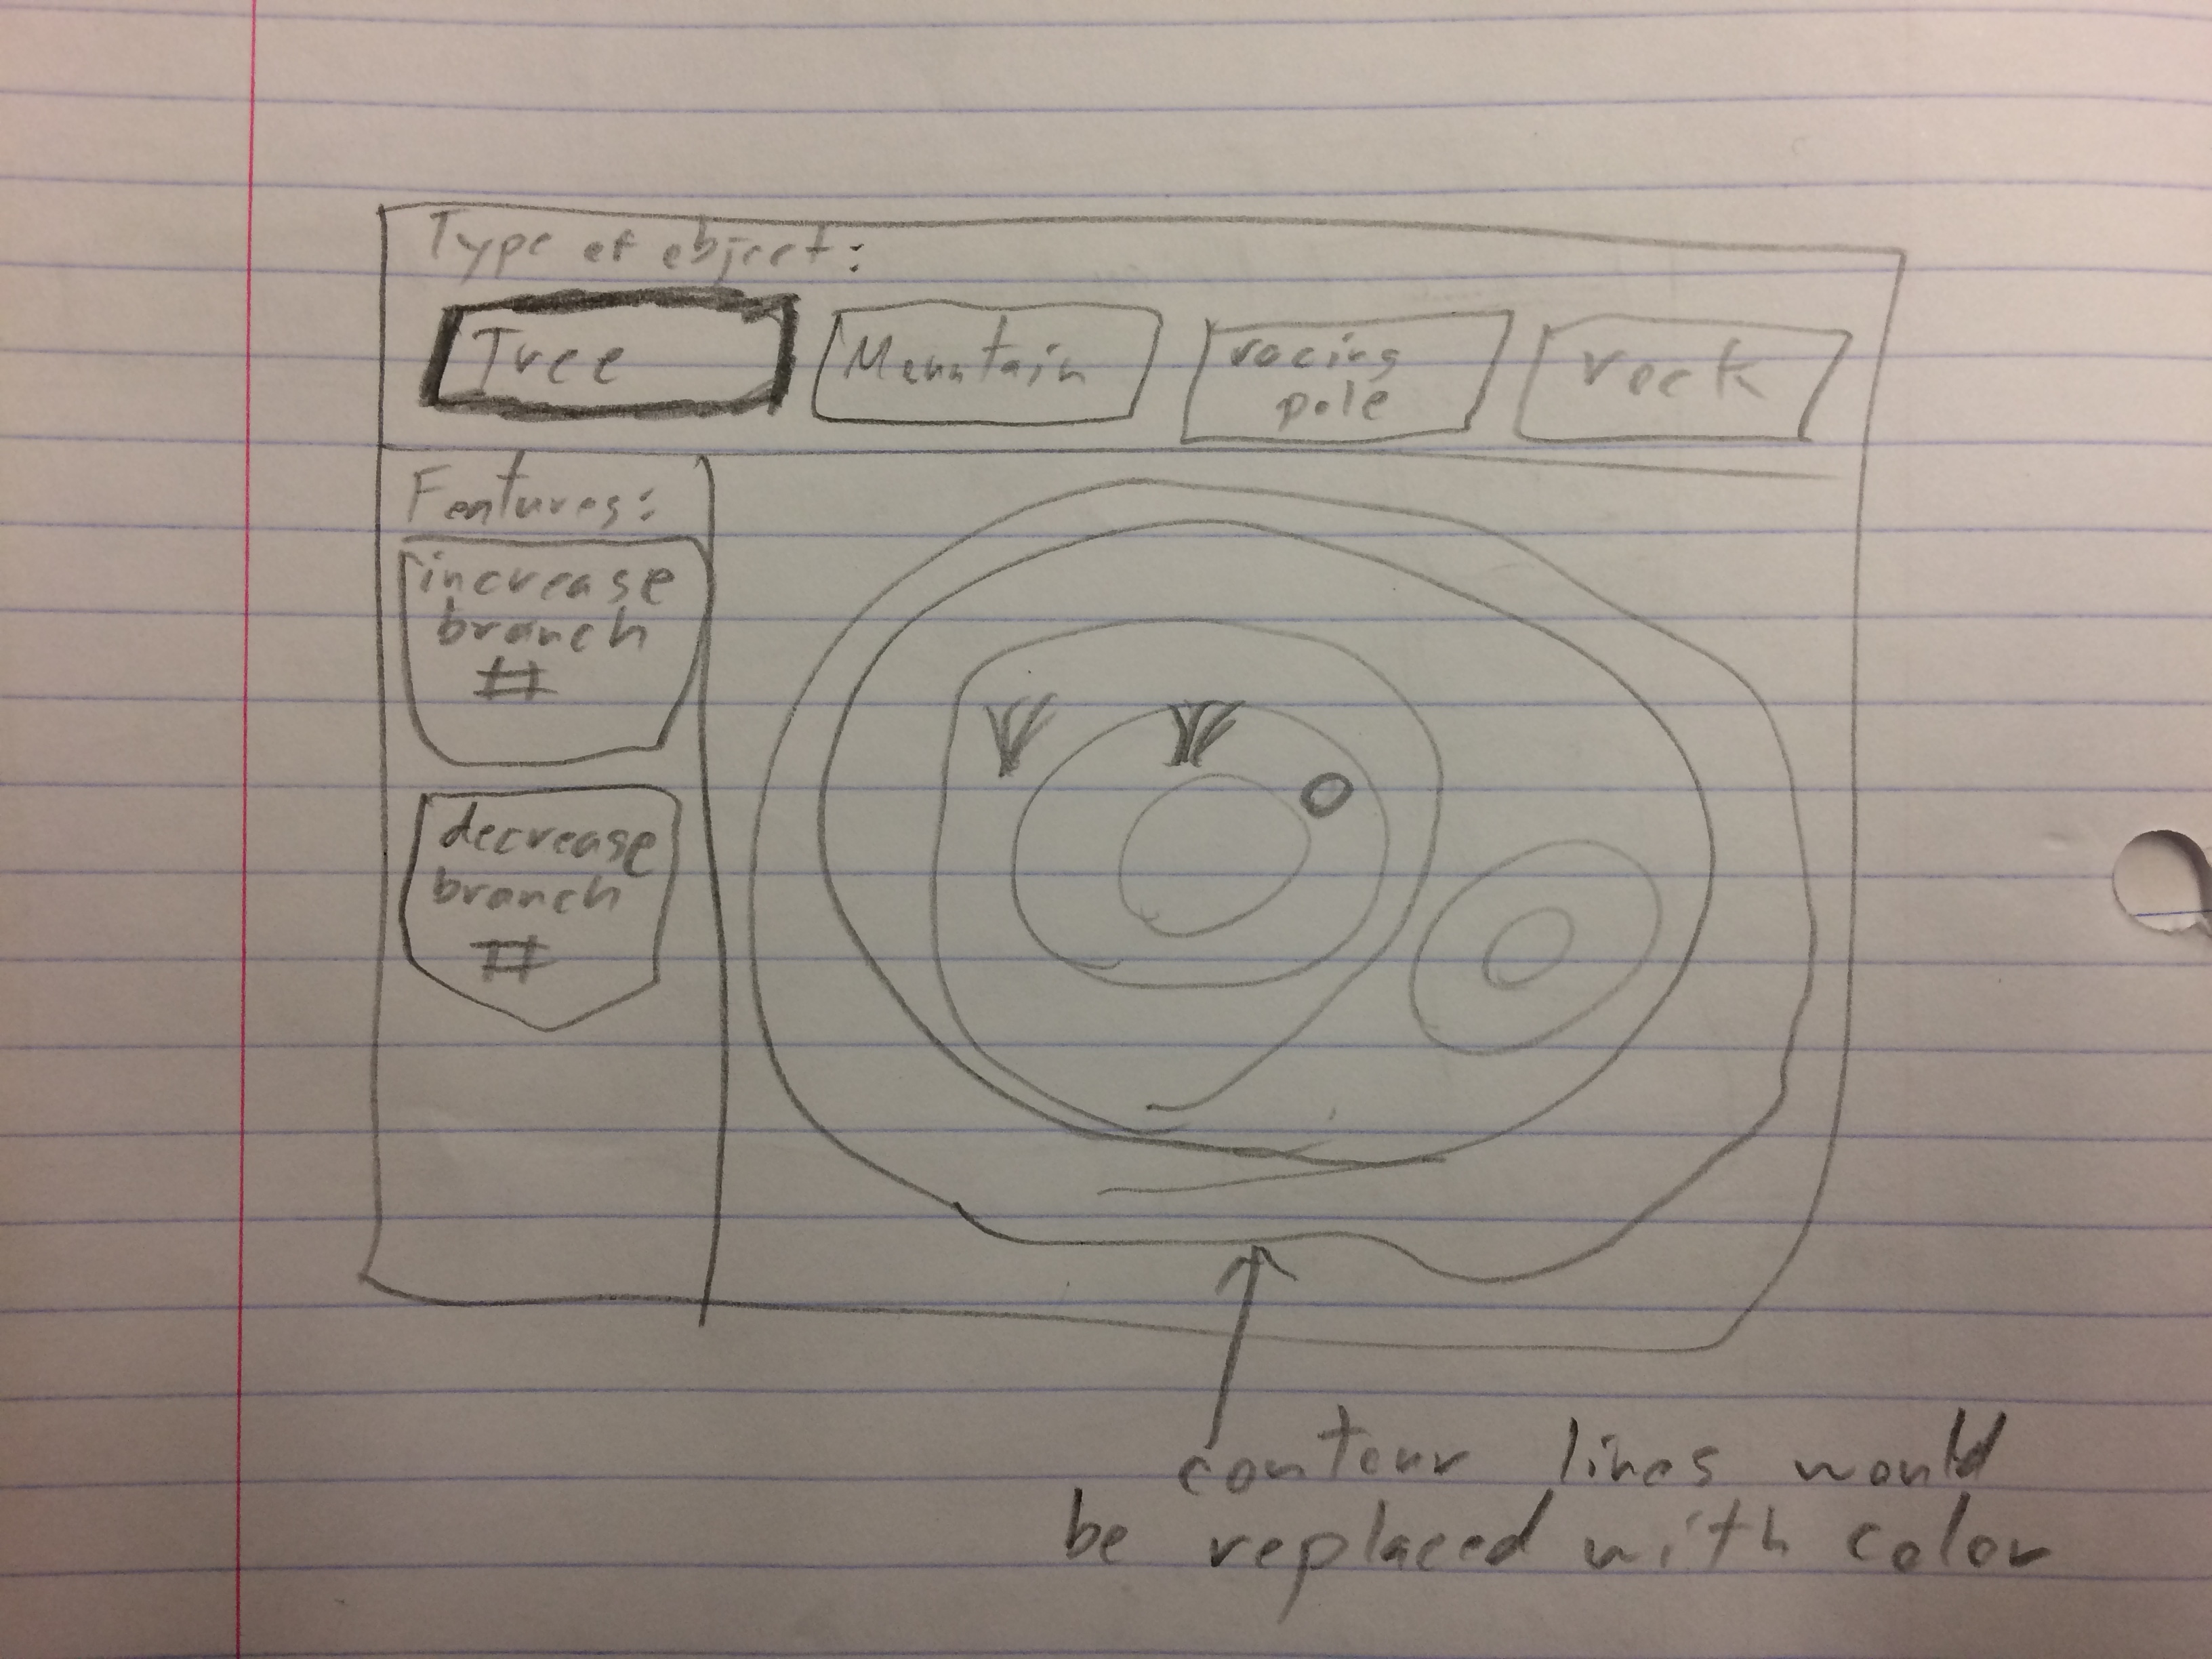 Type of object:
Tree
Mountain
racing
pole
rock
Features:
increase
branch
#
decrease
branch
#
contour lines would
be replaced with color